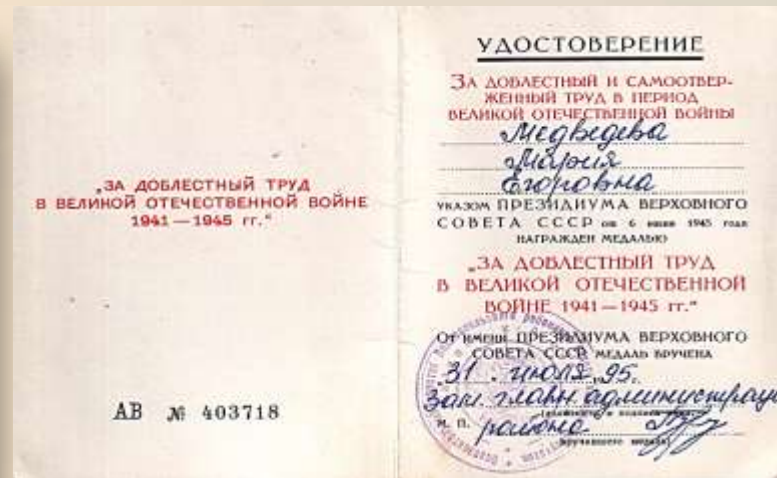 „ЗА ДОБЛЕСТНЫЙ ТРУД
В ВЕЛИКОЙ ОТЕЧЕСТВЕННОЙ ВОЙНЕ
1941—1945 гг.“
АВ № 403718
УДОСТОВЕРЕНИЕ
ЗА ДОБЛЕСТНЫЙ И САМООТВЕР-
ЖЕННЫЙ ТРУД В ПЕРИОД
ВЕЛИКОЙ ОТЕЧЕСТВЕННОЙ ВОЙНЫ
Медведева
Мария
Егоровна
УКАЗОМ ПРЕЗИДИУМА ВЕРХОВНОГО
СОВЕТА СССР от 6 июня 1945 года
НАГРАЖДЕН МЕДАЛЬЮ
„ЗА ДОБЛЕСТНЫЙ ТРУД
В ВЕЛИКОЙ ОТЕЧЕСТВЕННОЙ
ВОЙНЕ 1941—1945 гг.“
ОТ ИМЕНИ ПРЕЗИДИУМА ВЕРХОВНОГО
СОВЕТА СССР МЕДАЛЬ ВРУЧЕНА
31 июля 95.
Зам. главы администрац
М. П. района